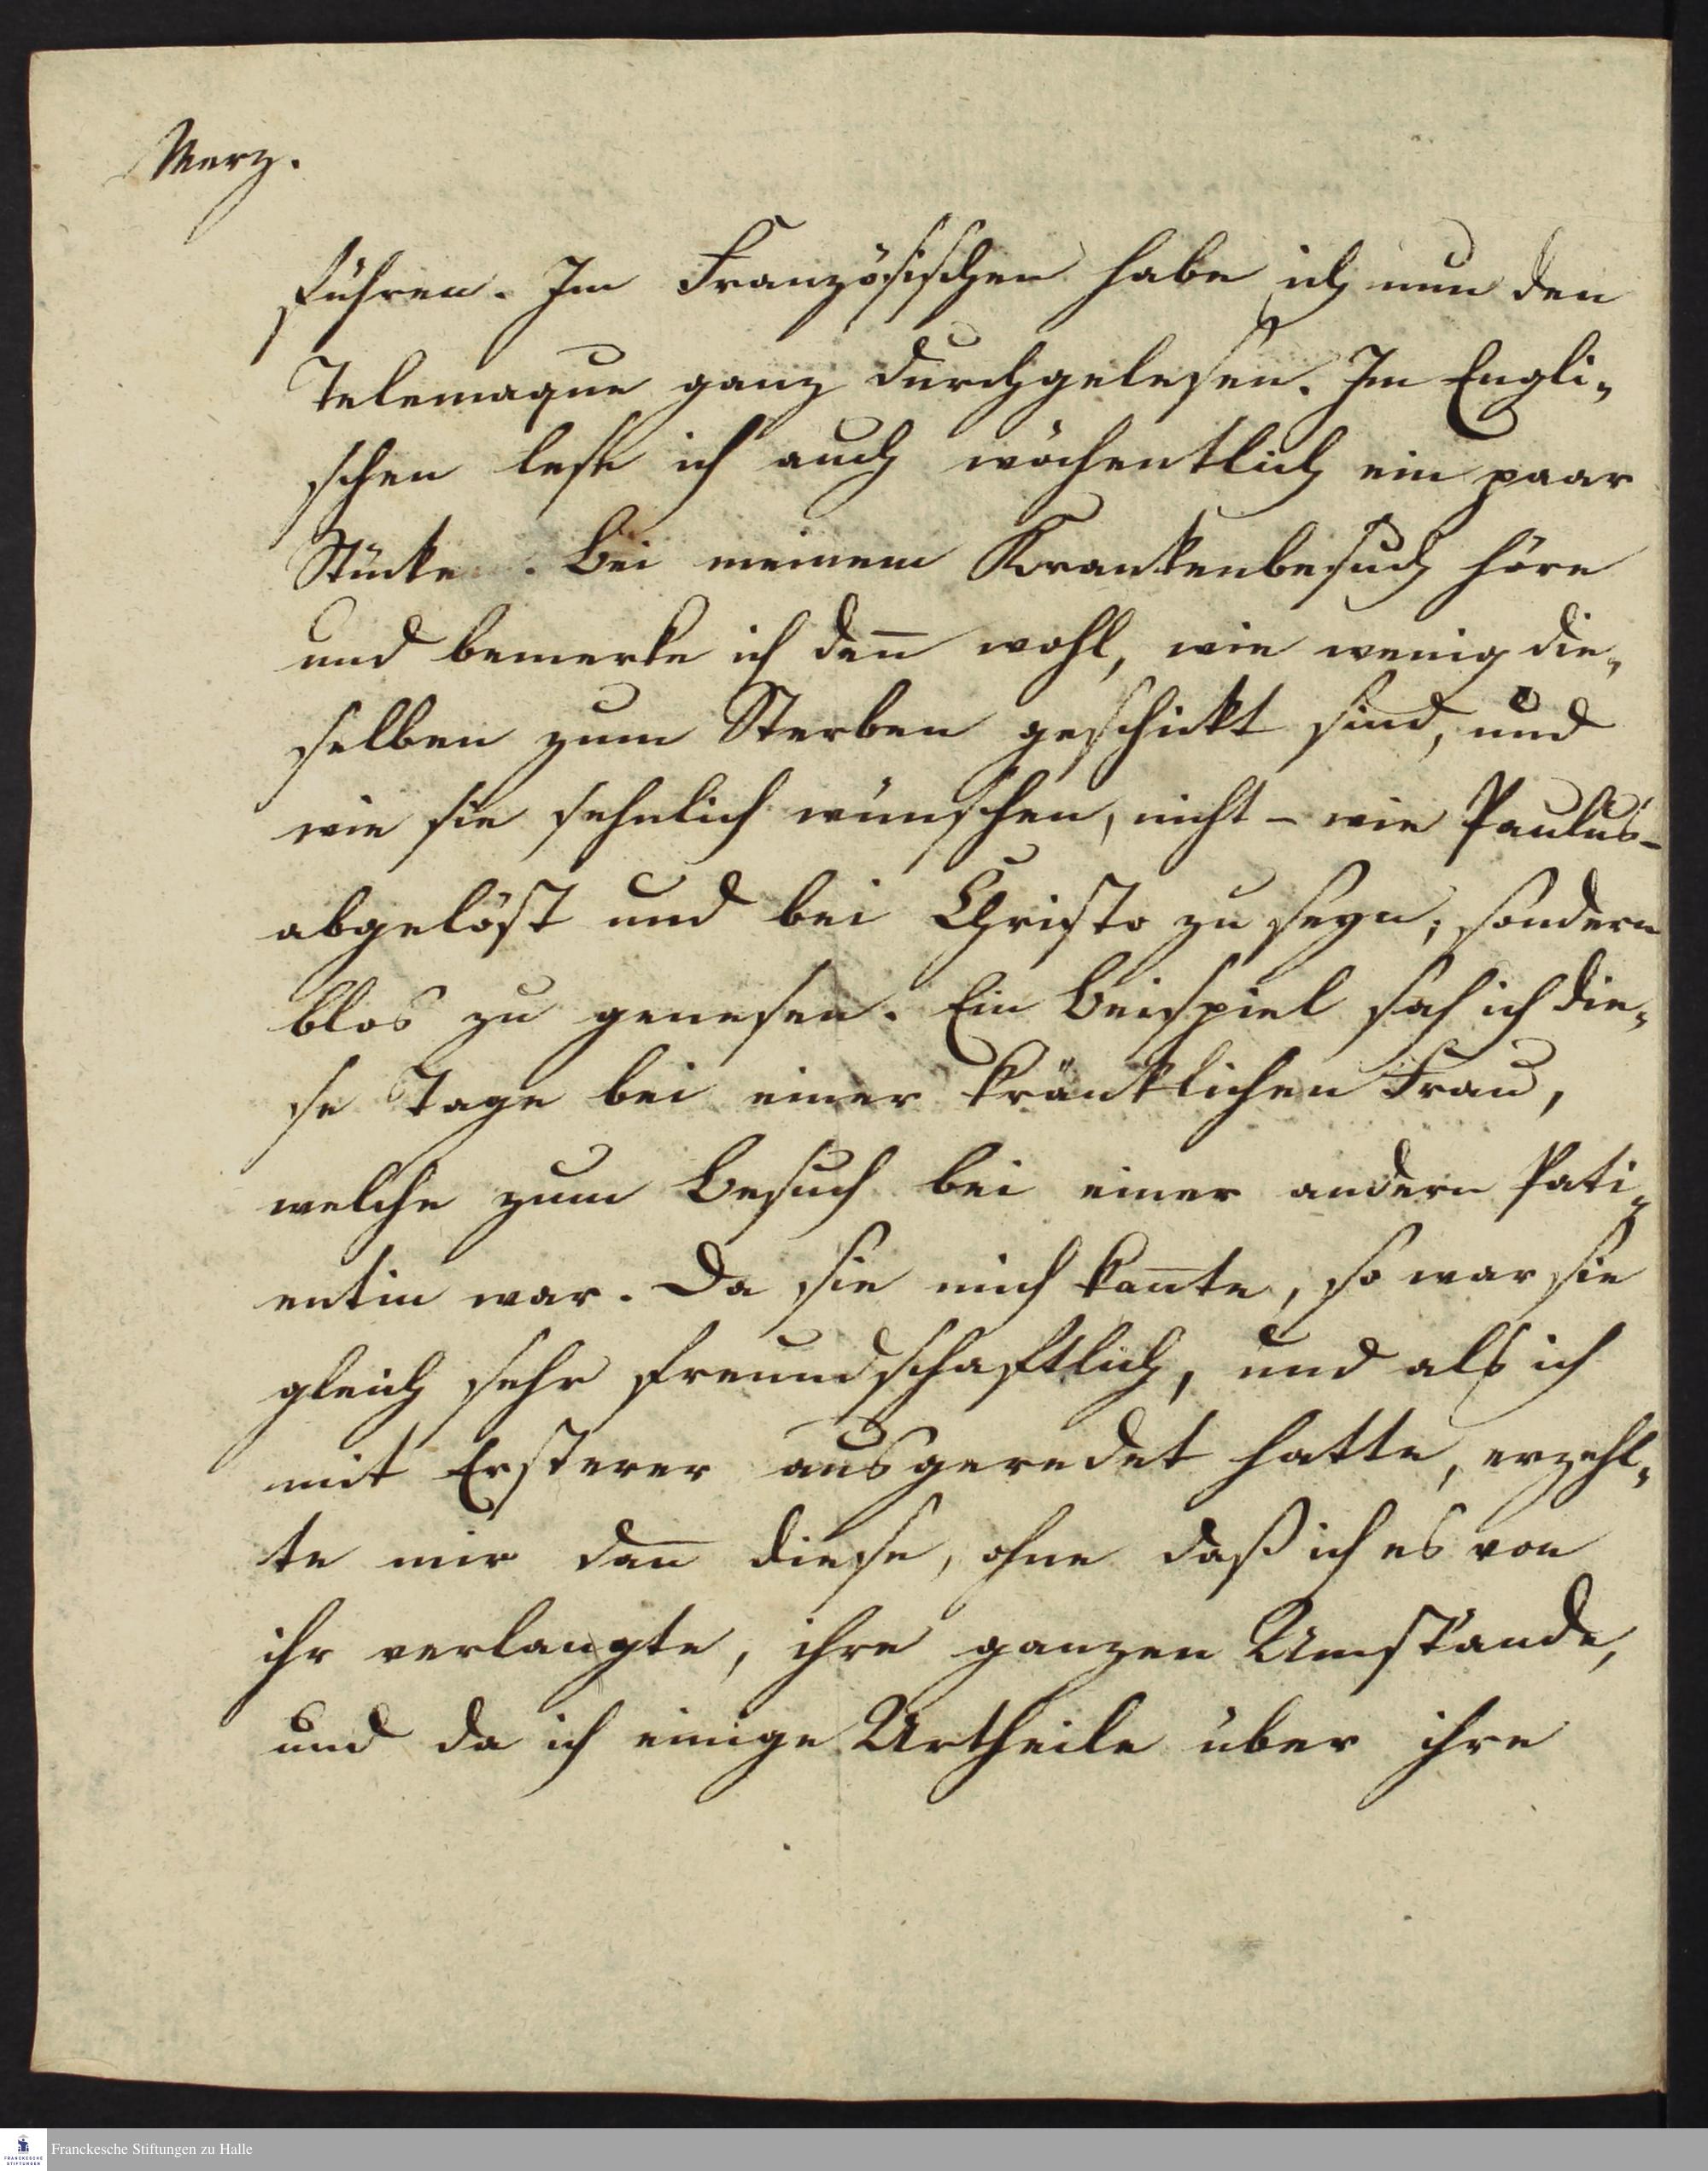 Merz.
führen. Im Französischen habe ich nun den
Telemaque ganz durchgelesen. Im Engli-
schen lese ich auch wöchentlich ein paar
Stücke. Bei meinem Krankenbesuch höre
und bemerke ich den̅ wohl, wie wenig die-
selben zum Sterben geschickt sind, und
wie sie sehnlich wünschen, nicht - wie Paulus -
abgelöst und bei Christo zu seyn; sondern
blos zu genesen. Ein Beispiel sah ich die-
se Tage bei einer kränklichen Frau,
welche zum Besuch bei einer andern Pati-
entin war. Da sie mich kan̅te, so war sie
gleich sehr freundschaftlich, und als ich
mit Ersterer ausgeredet hatte, erzehl-
te mir dan̅ diese, ohne daß ich es von
ihr verlangte, ihre ganzen Umstände,
und da ich einige Urtheile über ihre
Franckesche Stiftungen zu Halle
FRANCKESCHE
STIFTUNGEN